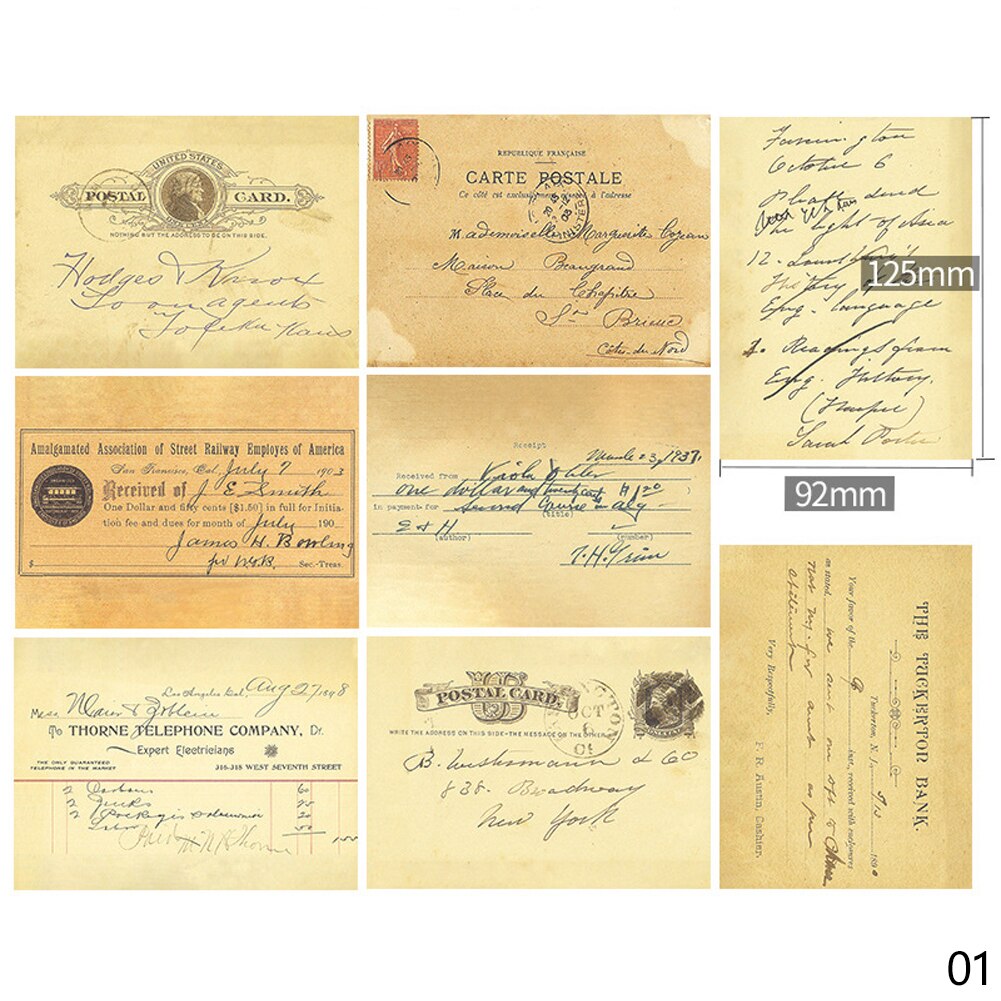 UNITED STATES
POSTAL CARD.
ONE CENT
NOTHING BUT THE ADDRESS TO BE ON THIS SIDE.
Hodges & Knox
Loan agents
Topeka Kans
REPUBLIQUE FRANÇAISE
CARTE POSTALE
Ce côté est exclusivement réservé à l'adresse
Mademoiselle Marguerite Cozean
Maison Beaugrand
Place du Chapitre
St Brieuc
Côtes-du-Nord
Farmington
October 6
Please send
The Light of Asia
12.
History
Eng. Language
Readings from
Eng. History.
(Harper)
Sarah Porter
125mm
92mm
Amalgamated Association of Street Railway Employes of America
San Francisco, Cal. July 7 1903
Received of J. E. Smith
One Dollar and fifty cents [$1.50] in full for Initia-
tion fee and dues for month of July 190
James H. Bowling
$ Sec.-Treas.
Receipt
March 23, 1937
Received from Viola
One dollar and twenty cents $1.20 )
in payment for second course in alg
(title)
E & H
(author) (number)
THE TUCKERTON BANK.
Tuckerton, N. J. 9/13 1890
Your favor of the inst., received with enclosures
as stated. we
Very Respectfully,
F. R. Austin, Cashier.
Los Angeles Cal. Aug 27 1898
Mess
To THORNE TELEPHONE COMPANY, Dr.
Expert Electricians
THE ONLY GUARANTEED
TELEPHONE IN THE MARKET
316-318 WEST SEVENTH STREET
2 Carbons 60
2 Jacks
2
Labor 50
US
POSTAL CARD.
OCT
WRITE THE ADDRESS ON THIS SIDE-THE MESSAGE ON THE OTHER
B. Westermann & Co
838 Broadway
New York
01